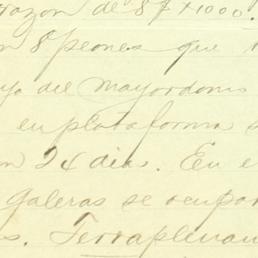 razon de 87 x 1000.
n 8 peones que
ya del Mayordomo
en plataforma s
n 24 dias. En e
galeras se ocupar
s. Terraplenan